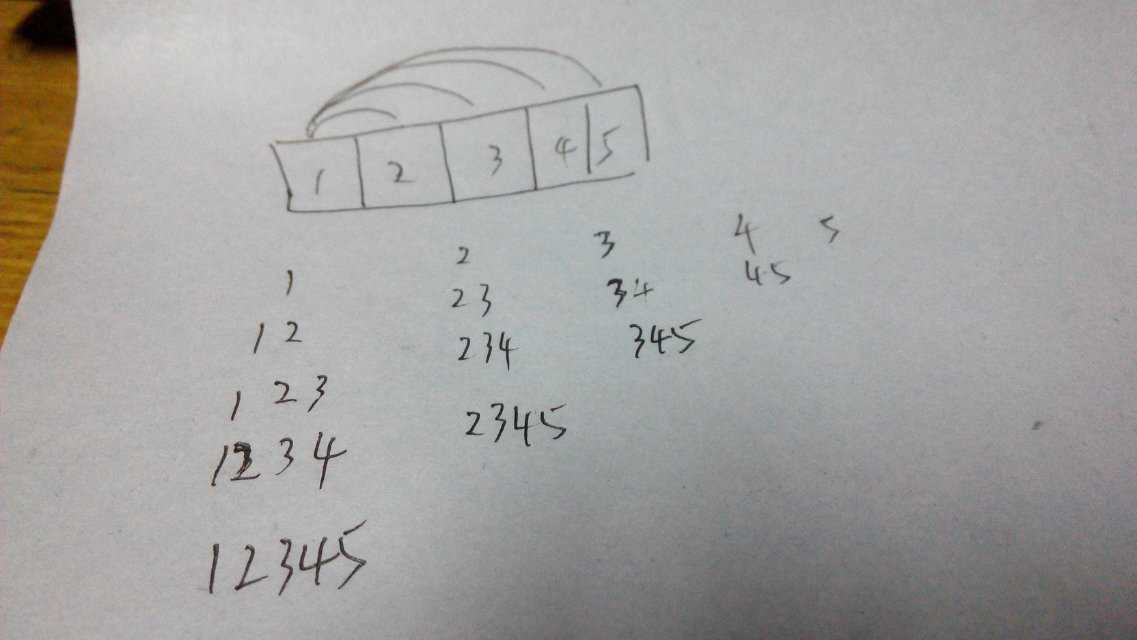 1 2 3 4 5
1 2 3 4 5
1 2 23 34 45
1 2 3 234 345
1 2 3 4 2345
1 2 3 4 5